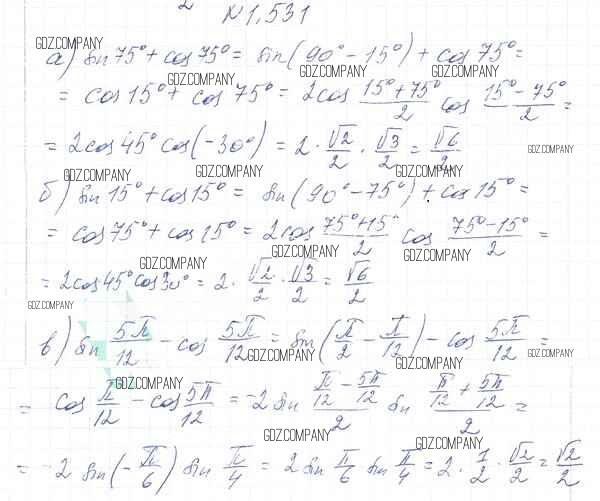 N 1,531
GDZ.COMPANY
а) sin 75° + cos 75° = sin(90° - 15°) + cos 75° =
GDZ.COMPANY GDZ.COMPANY GDZ.COMPANY
= cos 15° + cos 75° = 2cos (15° + 75°)/2 cos (15° - 75°)/2 =
= 2cos 45° cos(-30°) = 2 · √2/2 · √3/2 = √6/2
GDZ.COMPANY
GDZ.COMPANY GDZ.COMPANY GDZ.COMPANY
б) sin 15° + cos 15° = sin(90° - 75°) + cos 15° =
= cos 75° + cos 15° = 2cos (75° + 15°)/2 cos (75° - 15°)/2 =
GDZ.COMPANY GDZ.COMPANY
= 2cos 45° cos 30° = 2 · √2/2 · √3/2 = √6/2
GDZ.COMPANY
в) sin 5π/12 - cos 5π/12 = sin(π/2 - π/12) - cos 5π/12 =
GDZ.COMPANY GDZ.COMPANY
GDZ.COMPANY GDZ.COMPANY
= cos π/12 - cos 5π/12 = -2 sin (π/12 - 5π/12)/2 sin (π/12 + 5π/12)/2 =
GDZ.COMPANY GDZ.COMPANY
= -2 sin(-π/6) sin π/4 = 2 sin π/6 sin π/4 = 2 · 1/2 · √2/2 = √2/2